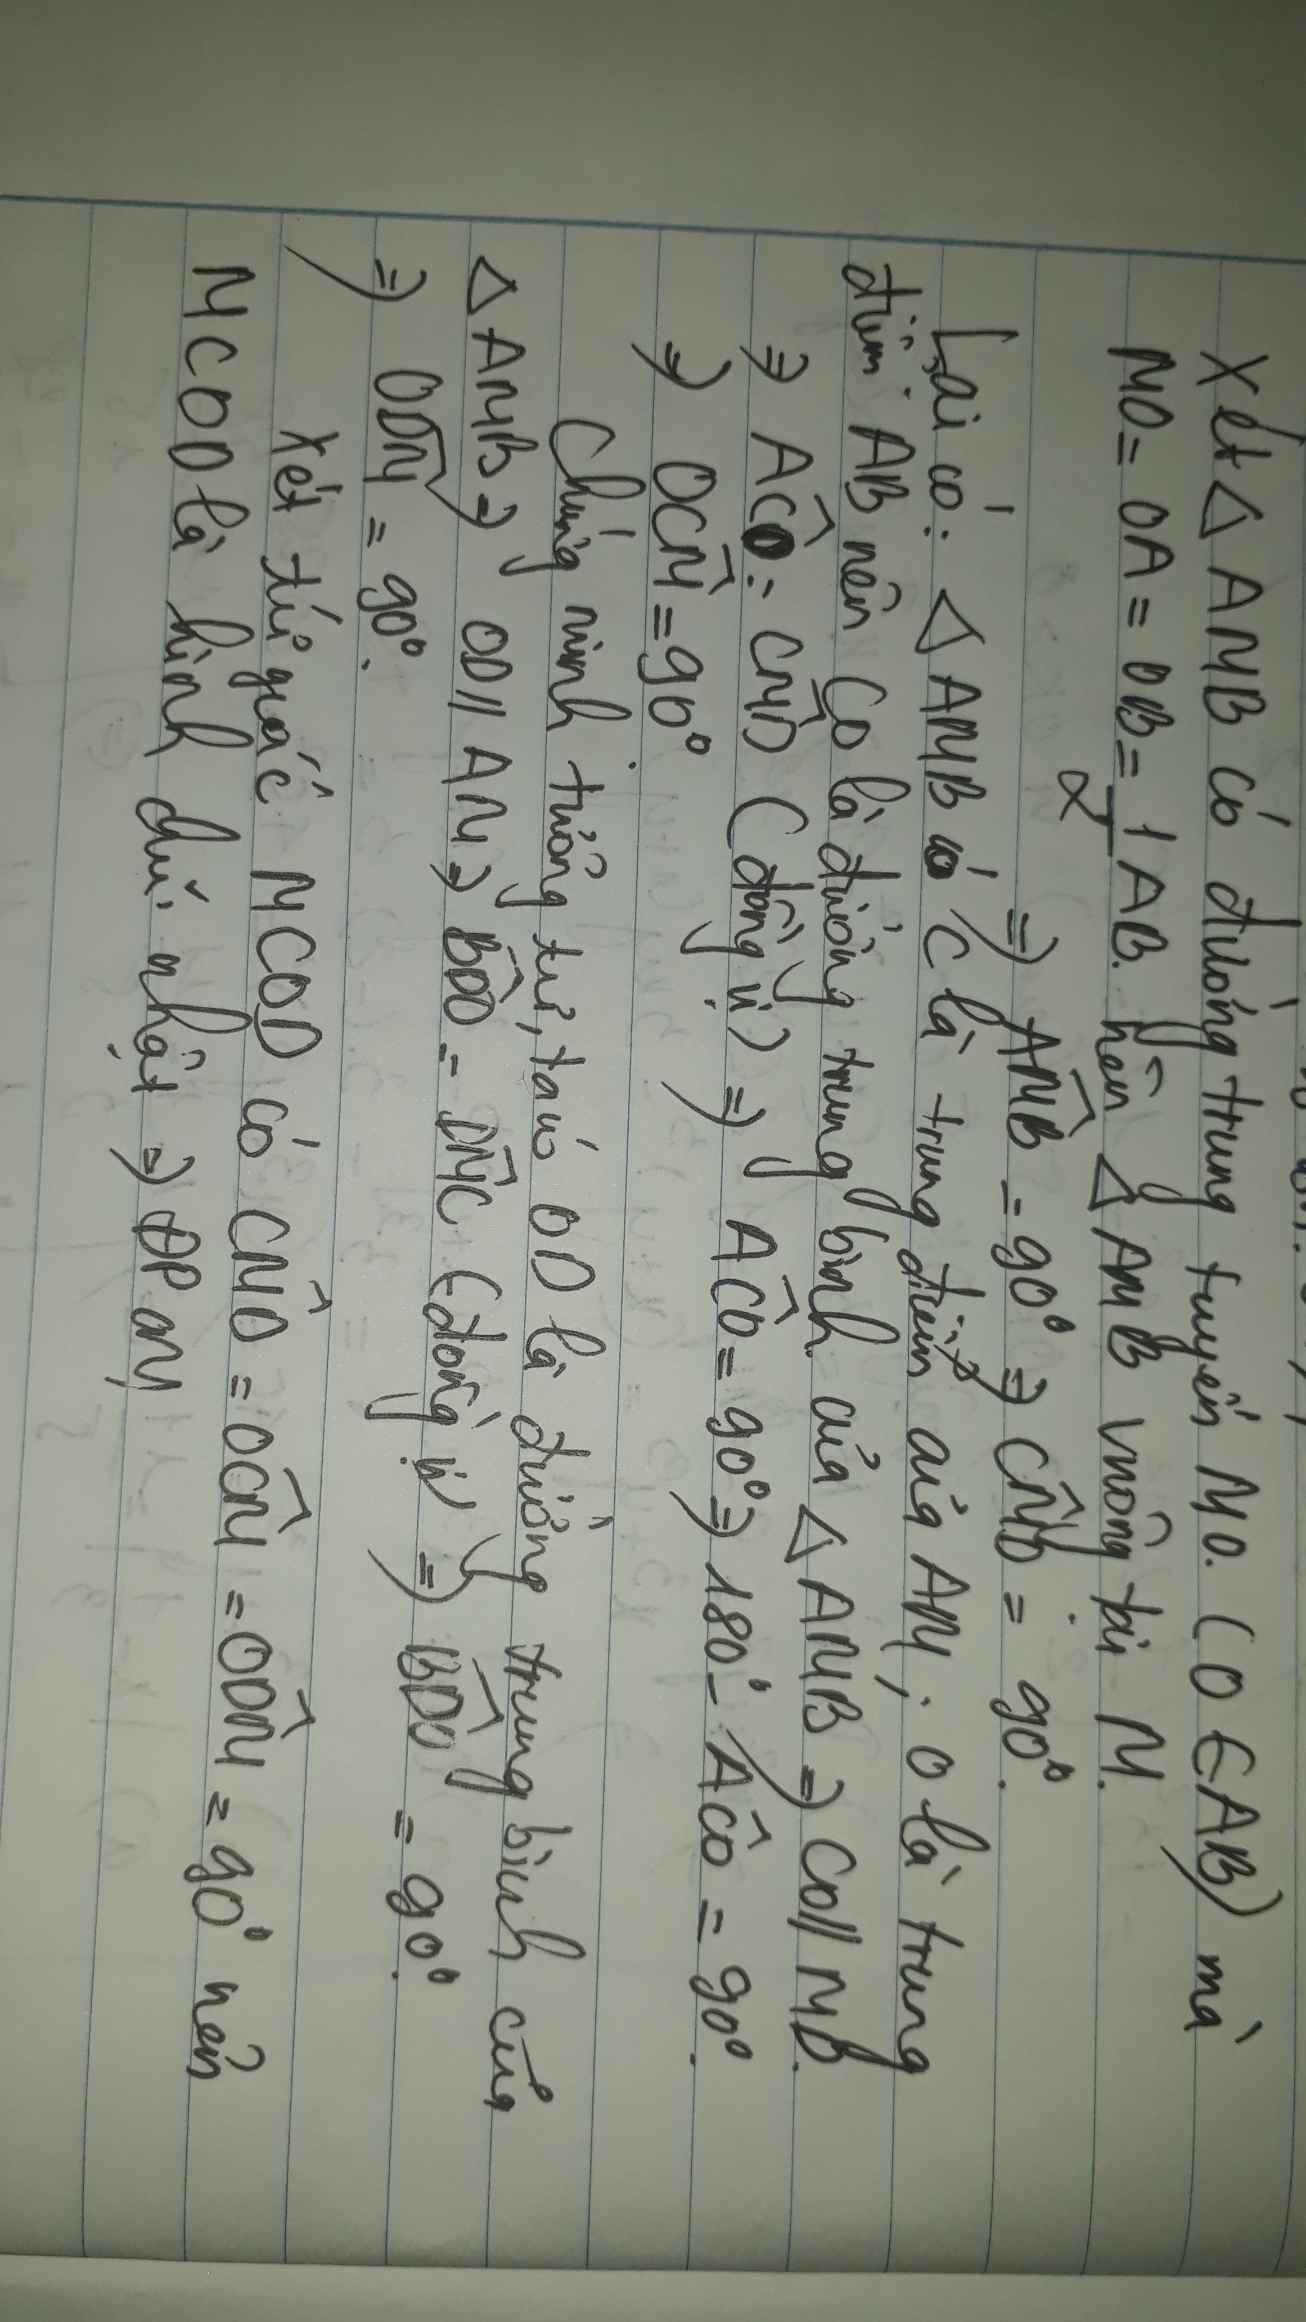 Xét △ AMB có đường trung tuyến MO. (O ∈ AB) mà
MO = OA = OB = 1/2 AB. nên △ AMB vuông tại M.
⇒ AM̂B = 90° ⇒ CM̂D = 90°.
Lại có: △ AMB có C là trung điểm của AM, O là trung
điểm AB nên CO là đường trung bình của △ AMB ⇒ CO // MB.
⇒ AĈO = CM̂D (đồng vị) ⇒ AĈO = 90° ⇒ 180° - AĈO = 90°.
⇒ OĈM = 90°
Chứng minh tương tự, ta có OD là đường trung bình của
△ AMB ⇒ OD // AM ⇒ BD̂O = DM̂C (đồng vị) ⇒ BD̂O = 90°.
⇒ OD̂M = 90°.
Xét tứ giác MCOD có CM̂D = OĈM = OD̂M = 90° nên
MCOD là hình chữ nhật ⇒ ĐPCM